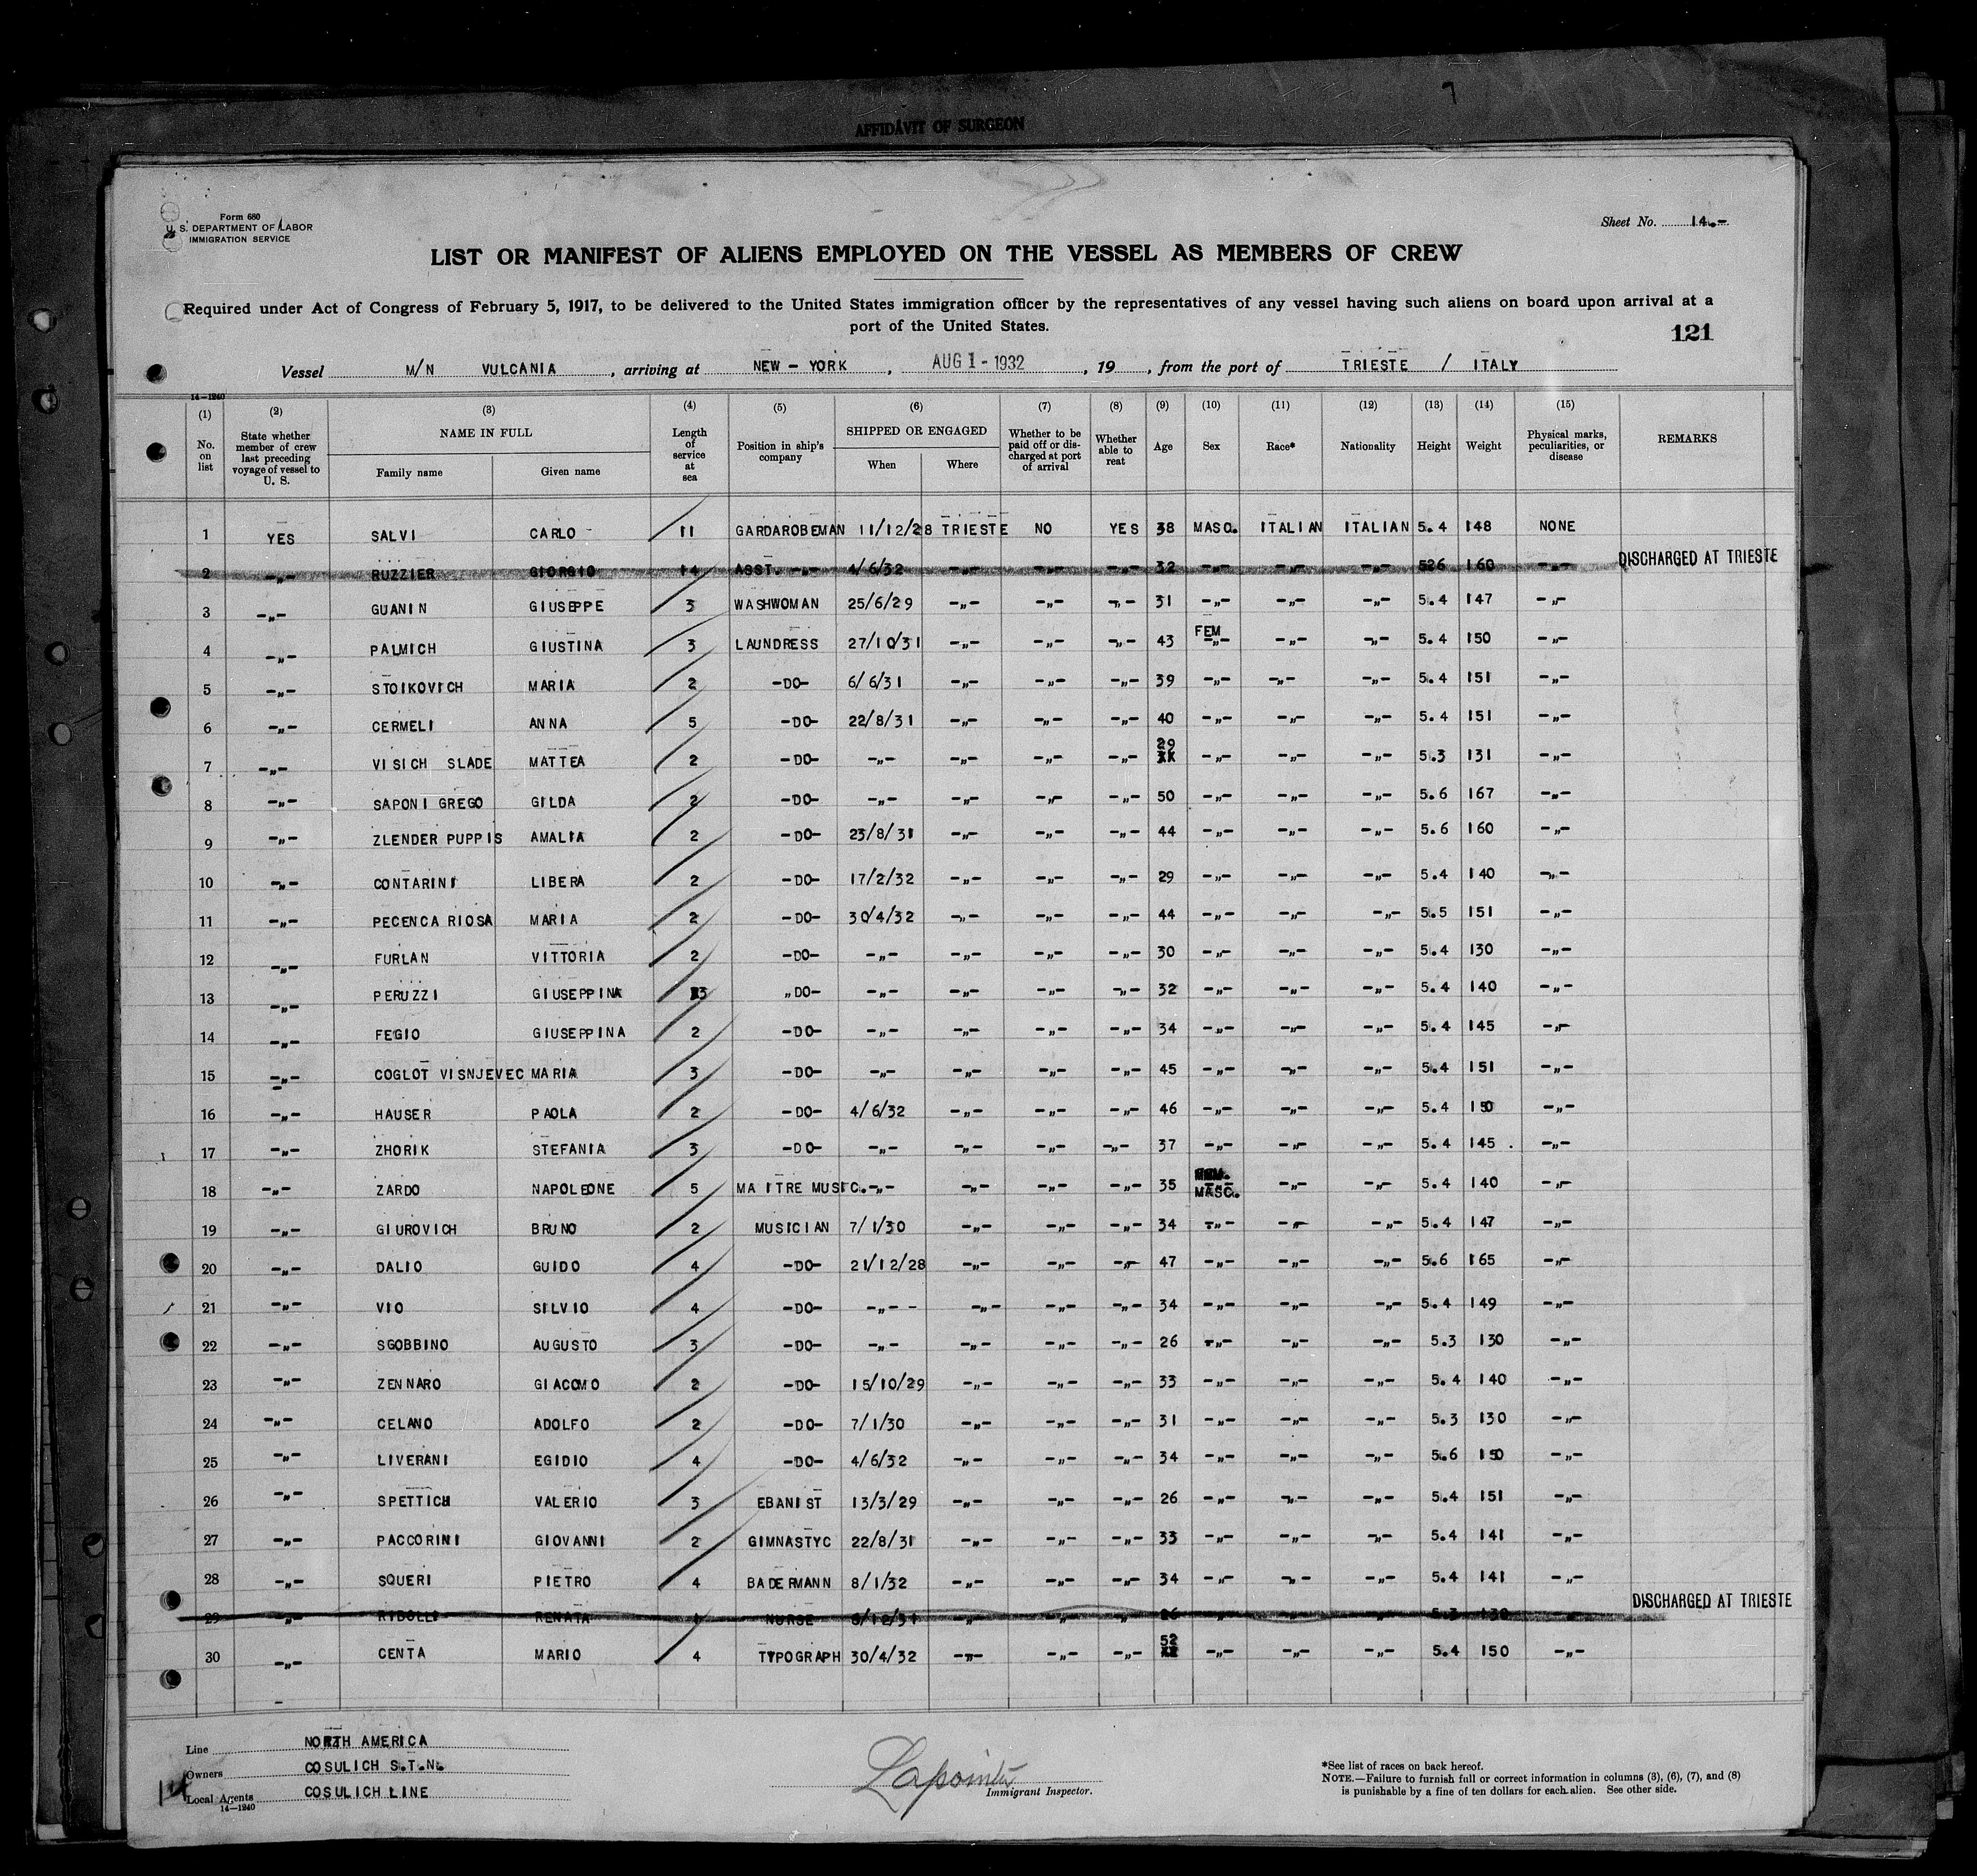 AFFIDAVIT OF SURGEON
Form 680
U. S. DEPARTMENT OF LABOR
IMMIGRATION SERVICE
Sheet No. 14.-
LIST OR MANIFEST OF ALIENS EMPLOYED ON THE VESSEL AS MEMBERS OF CREW
Required under Act of Congress of February 5, 1917, to be delivered to the United States immigration officer by the representatives of any vessel having such aliens on board upon arrival at a
port of the United States.
121
Vessel M/N VULCANIA , arriving at NEW - YORK , AUG 1 - 1932 , 19 , from the port of TRIESTE / ITALY
14-1240
(1) (2) (3) (4) (5) (6) (7) (8) (9) (10) (11) (12) (13) (14) (15)
No. on list | State whether member of crew last preceding voyage of vessel to U. S. | NAME IN FULL Family name Given name | Length of service at sea | Position in ship's company | SHIPPED OR ENGAGED When Where | Whether to be paid off or discharged at port of arrival | Whether able to reat | Age | Sex | Race* | Nationality | Height | Weight | Physical marks, peculiarities, or disease | REMARKS
1 YES SALVI CARLO 11 GARDAROBEMAN 11/12/28 TRIESTE NO YES 38 MASC. ITALIAN ITALIAN 5.4 148 NONE
2 -„- RUZZIER GIORGIO 14 ASST. -„- 4/6/32 -„- -„- -„- 32 -„- -„- -„- 526 160 -„- DISCHARGED AT TRIESTE
3 -„- GUANIN GIUSEPPE 3 WASHWOMAN 25/6/29 -„- -„- -„- 31 -„- -„- -„- 5.4 147 -„-
4 -„- PALMICH GIUSTINA 3 LAUNDRESS 27/10/31 -„- -„- -„- 43 FEM -„- -„- -„- 5.4 150 -„-
5 -„- STOIKOVICH MARIA 2 -DO- 6/6/31 -„- -„- -„- 39 -„- -„- -„- 5.4 151 -„-
6 -„- CERMELI ANNA 5 -DO- 22/8/31 -„- -„- -„- 40 -„- -„- -„- 5.4 151 -„-
7 -„- VISICH SLADE MATTEA 2 -DO- -„- -„- -„- -„- 29 -„- -„- -„- 5.3 131 -„-
8 -„- SAPONI GREGO GILDA 2 -DO- -„- -„- -„- -„- 50 -„- -„- -„- 5.6 167 -„-
9 -„- ZLENDER PUPPIS AMALIA 2 -DO- 23/8/31 -„- -„- -„- 44 -„- -„- -„- 5.6 160 -„-
10 -„- CONTARINI LIBERA 2 -DO- 17/2/32 -„- -„- -„- 29 -„- -„- -„- 5.4 140 -„-
11 -„- PECENCA RIOSA MARIA 2 -DO- 30/4/32 -„- -„- -„- 44 -„- -„- -„- 5.5 151 -„-
12 -„- FURLAN VITTORIA 2 -DO- -„- -„- -„- -„- 30 -„- -„- -„- 5.4 130 -„-
13 -„- PERUZZI GIUSEPPINA 3 „DO- -„- -„- -„- -„- 32 -„- -„- -„- 5.4 140 -„-
14 -„- FEGIO GIUSEPPINA 2 -DO- -„- -„- -„- -„- 34 -„- -„- -„- 5.4 145 -„-
15 -„- COGLOT VISNJEVEC MARIA 3 -DO- -„- -„- -„- -„- 45 -„- -„- -„- 5.4 151 -„-
16 -„- HAUSER PAOLA 2 -DO- 4/6/32 -„- -„- -„- 46 -„- -„- -„- 5.4 150 -„-
17 -„- ZHORIK STEFANIA 3 -DO- -„- -„- -„- -„- 37 -„- -„- -„- 5.4 145 -„-
18 -„- ZARDO NAPOLEONE 5 MAITRE MUSIC. -„- -„- -„- -„- 35 MASC. -„- -„- 5.4 140 -„-
19 -„- GIUROVICH BRUNO 2 MUSICIAN 7/1/30 -„- -„- -„- 34 -„- -„- -„- 5.4 147 -„-
20 -„- DALIO GUIDO 4 -DO- 21/12/28 -„- -„- -„- 47 -„- -„- -„- 5.6 165 -„-
21 -„- VIO SILVIO 4 -DO- -„-- -„- -„- -„- 34 -„- -„- -„- 5.4 149 -„-
22 -„- SGOBBINO AUGUSTO 3 -DO- -„- -„- -„- -„- 26 -„- -„- -„- 5.3 130 -„-
23 -„- ZENNARO GIACOMO 2 -DO- 15/10/29 -„- -„- -„- 33 -„- -„- -„- 5.4 140 -„-
24 -„- CELANO ADOLFO 2 -DO- 7/1/30 -„- -„- -„- 31 -„- -„- -„- 5.3 130 -„-
25 -„- LIVERANI EGIDIO 4 -DO- 4/6/32 -„- -„- -„- 34 -„- -„- -„- 5.6 150 -„-
26 -„- SPETTICH VALERIO 3 EBANIST 13/3/29 -„- -„- -„- 26 -„- -„- -„- 5.4 151 -„-
27 -„- PACCORINI GIOVANNI 2 GIMNASTYC 22/8/31 -„- -„- -„- 33 -„- -„- -„- 5.4 141 -„-
28 -„- SQUERI PIETRO 4 BADERMANN 8/1/32 -„- -„- -„- 34 -„- -„- -„- 5.4 141 -„-
29 -„- RIDOLLI RENATA 1 NURSE 6/12/31 -„- -„- -„- 26 -„- -„- -„- 5.3 130 -„- DISCHARGED AT TRIESTE
30 -„- CENTA MARIO 4 TYPOGRAPH 30/4/32 -„- -„- -„- 52 -„- -„- -„- 5.4 150 -„-
Line NORTH AMERICA
Owners COSULICH S.T.N.
Local Agents COSULICH LINE
14-1240
14
Lapointe
Immigrant Inspector.
*See list of races on back hereof.
NOTE.—Failure to furnish full or correct information in columns (3), (6), (7), and (8)
is punishable by a fine of ten dollars for each alien. See other side.